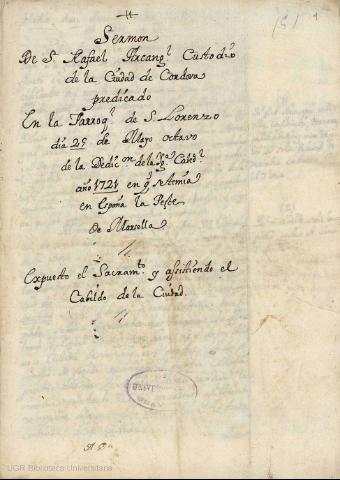 Sermon
De S. Rafael Arcangl. Custodio
de la Ciudad de Cordova
predicado
En la Parroql. de S. Lorenzo
dia 25 de Mayo octavo
de la Dedicon. de la Yga. Cathedl.
año 1721 en q se temia
en España la Peste
de Marsella
Expuesto el Sacramto. y assistiendo el
Cabildo de la Ciudad.
UGR Biblioteca Universitaria